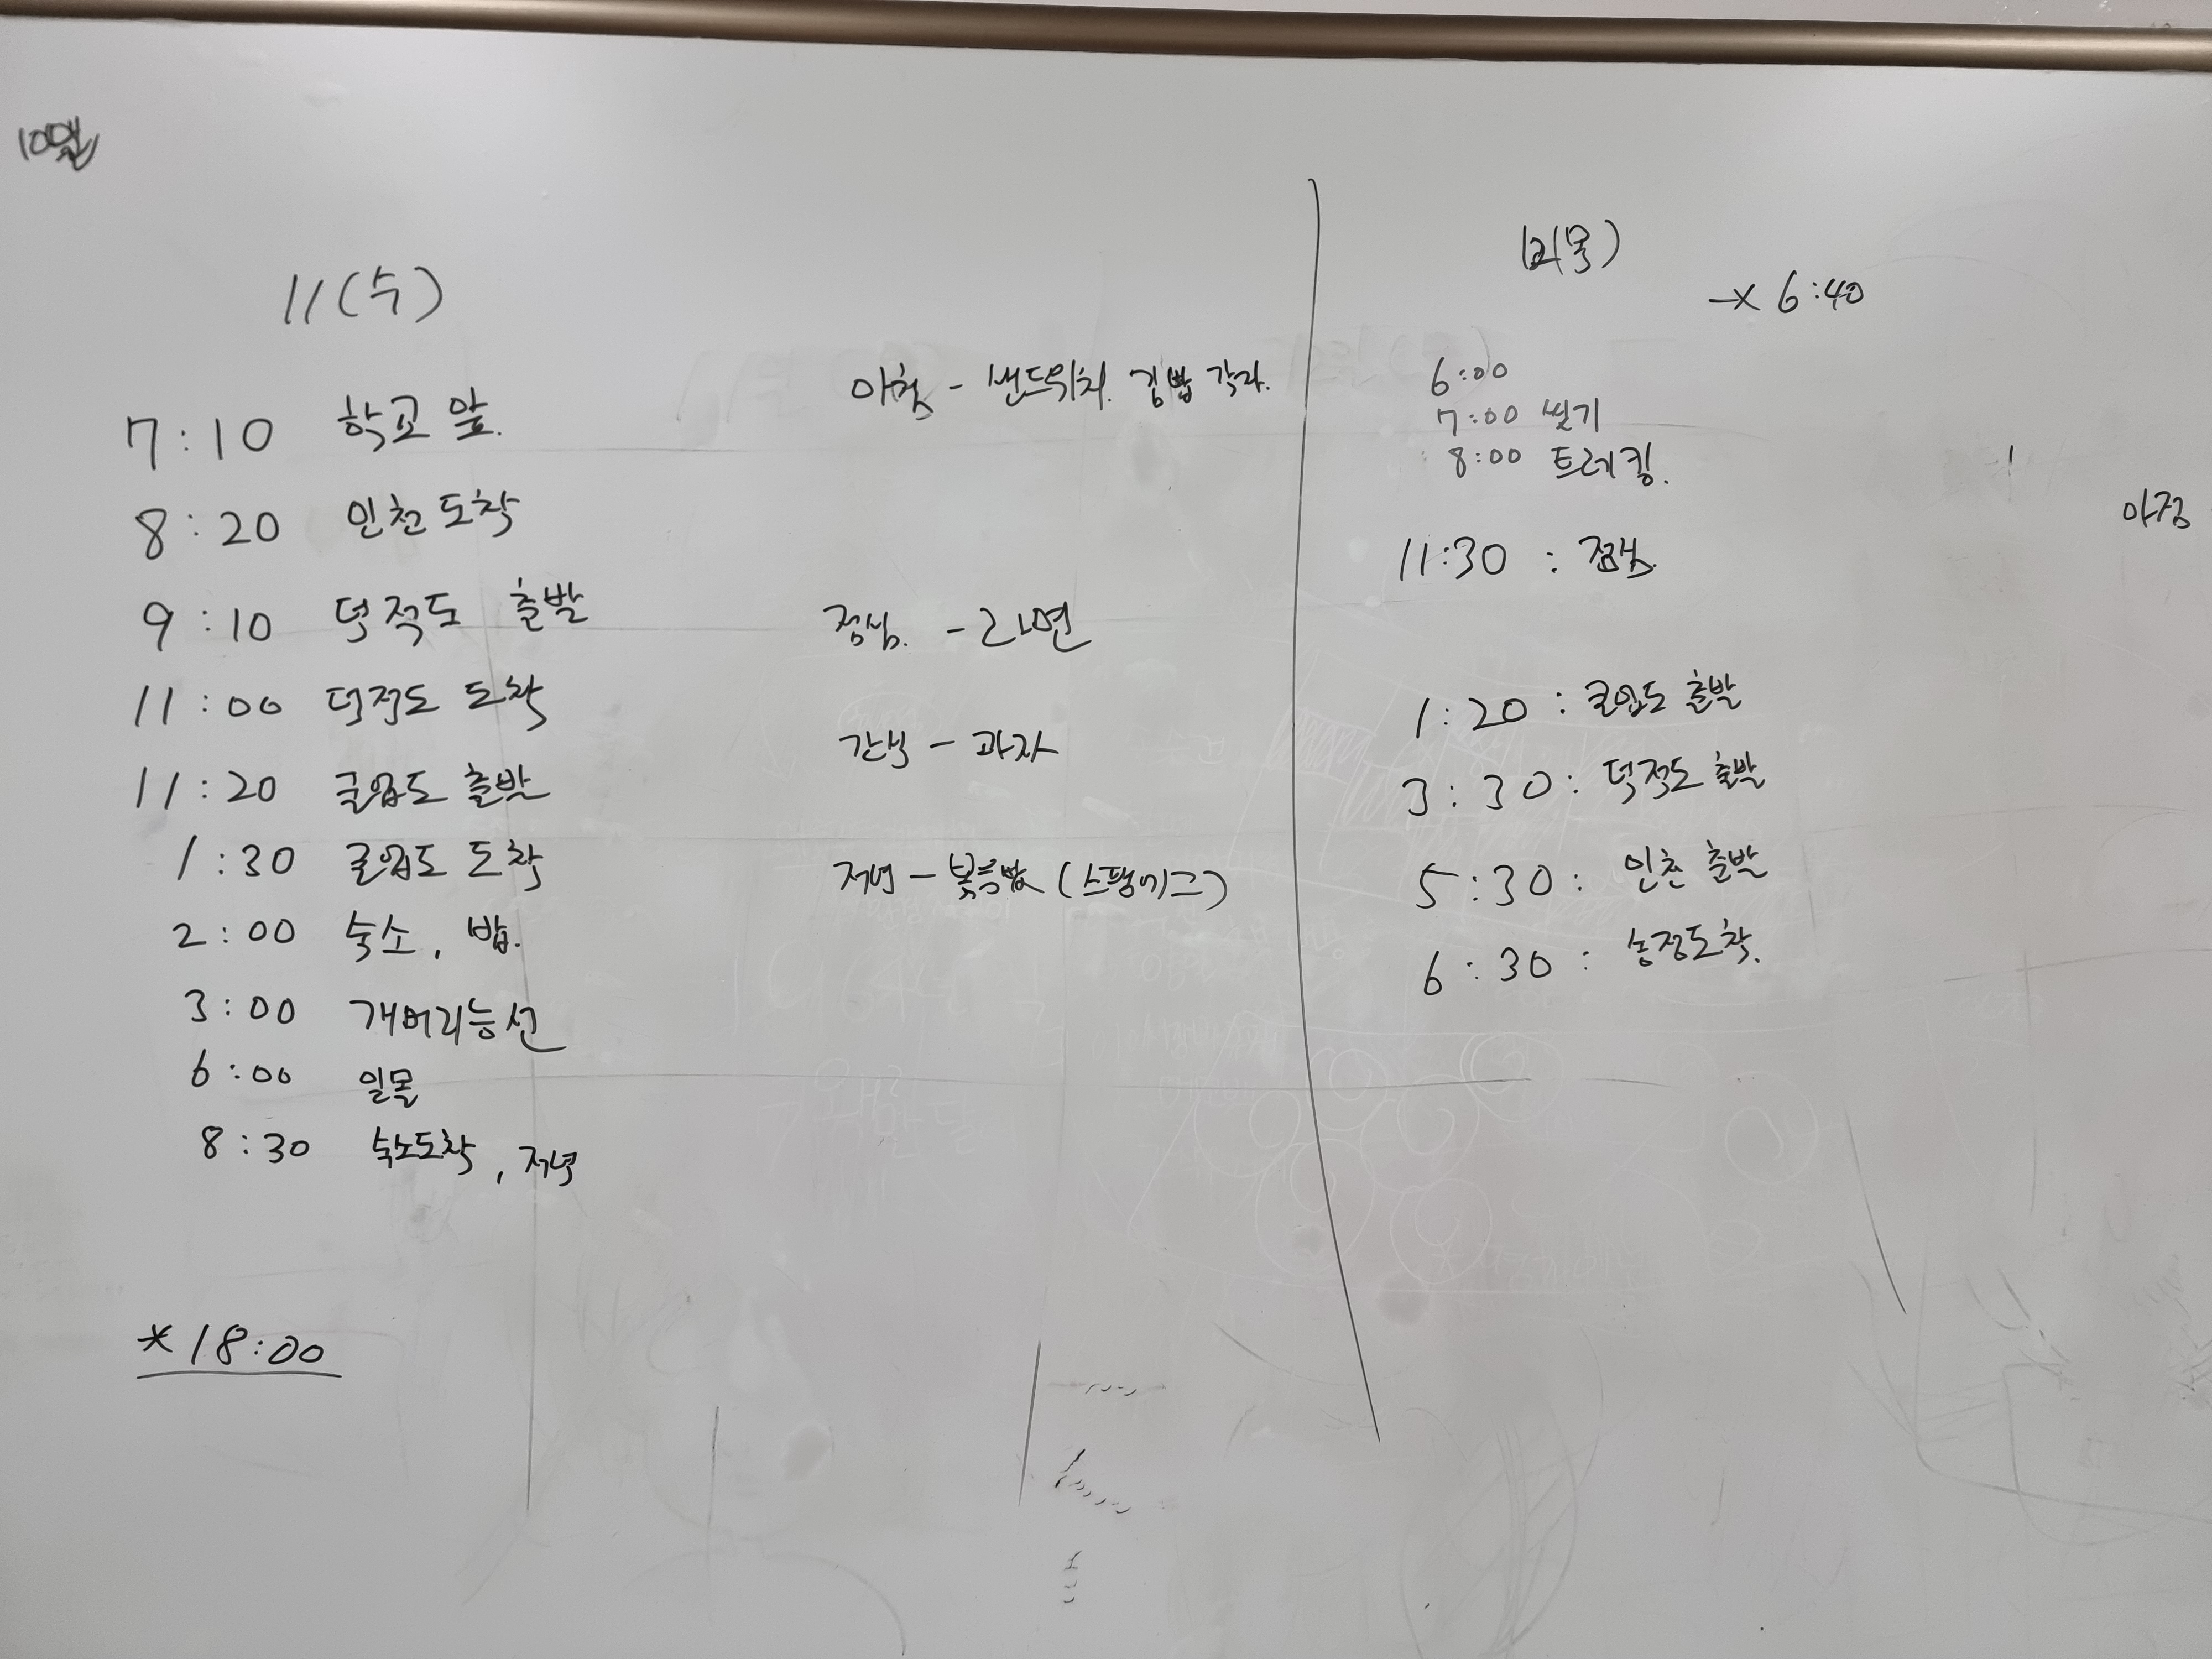 10월
11(수)
7:10 학교 앞.
8:20 인천 도착
9:10 덕적도 출발
11:00 덕적도 도착
11:20 굴업도 출발
1:30 굴업도 도착
2:00 숙소, 밥.
3:00 개머리능선
6:00 일몰
8:30 숙소도착, 저녁
*18:00
아침 - 샌드위치. 김밥 각자.
점심. - 라면
간식 - 과자
저녁 - 볶음밥 (스팸에그)
12(목)
6:40
6:00
7:00 씻기
8:00 트레킹.
11:30 : 점심.
1:20 : 굴업도 출발
3:30 : 덕적도 출발
5:30 : 인천 출발
6:30 : 송정도착.
아점